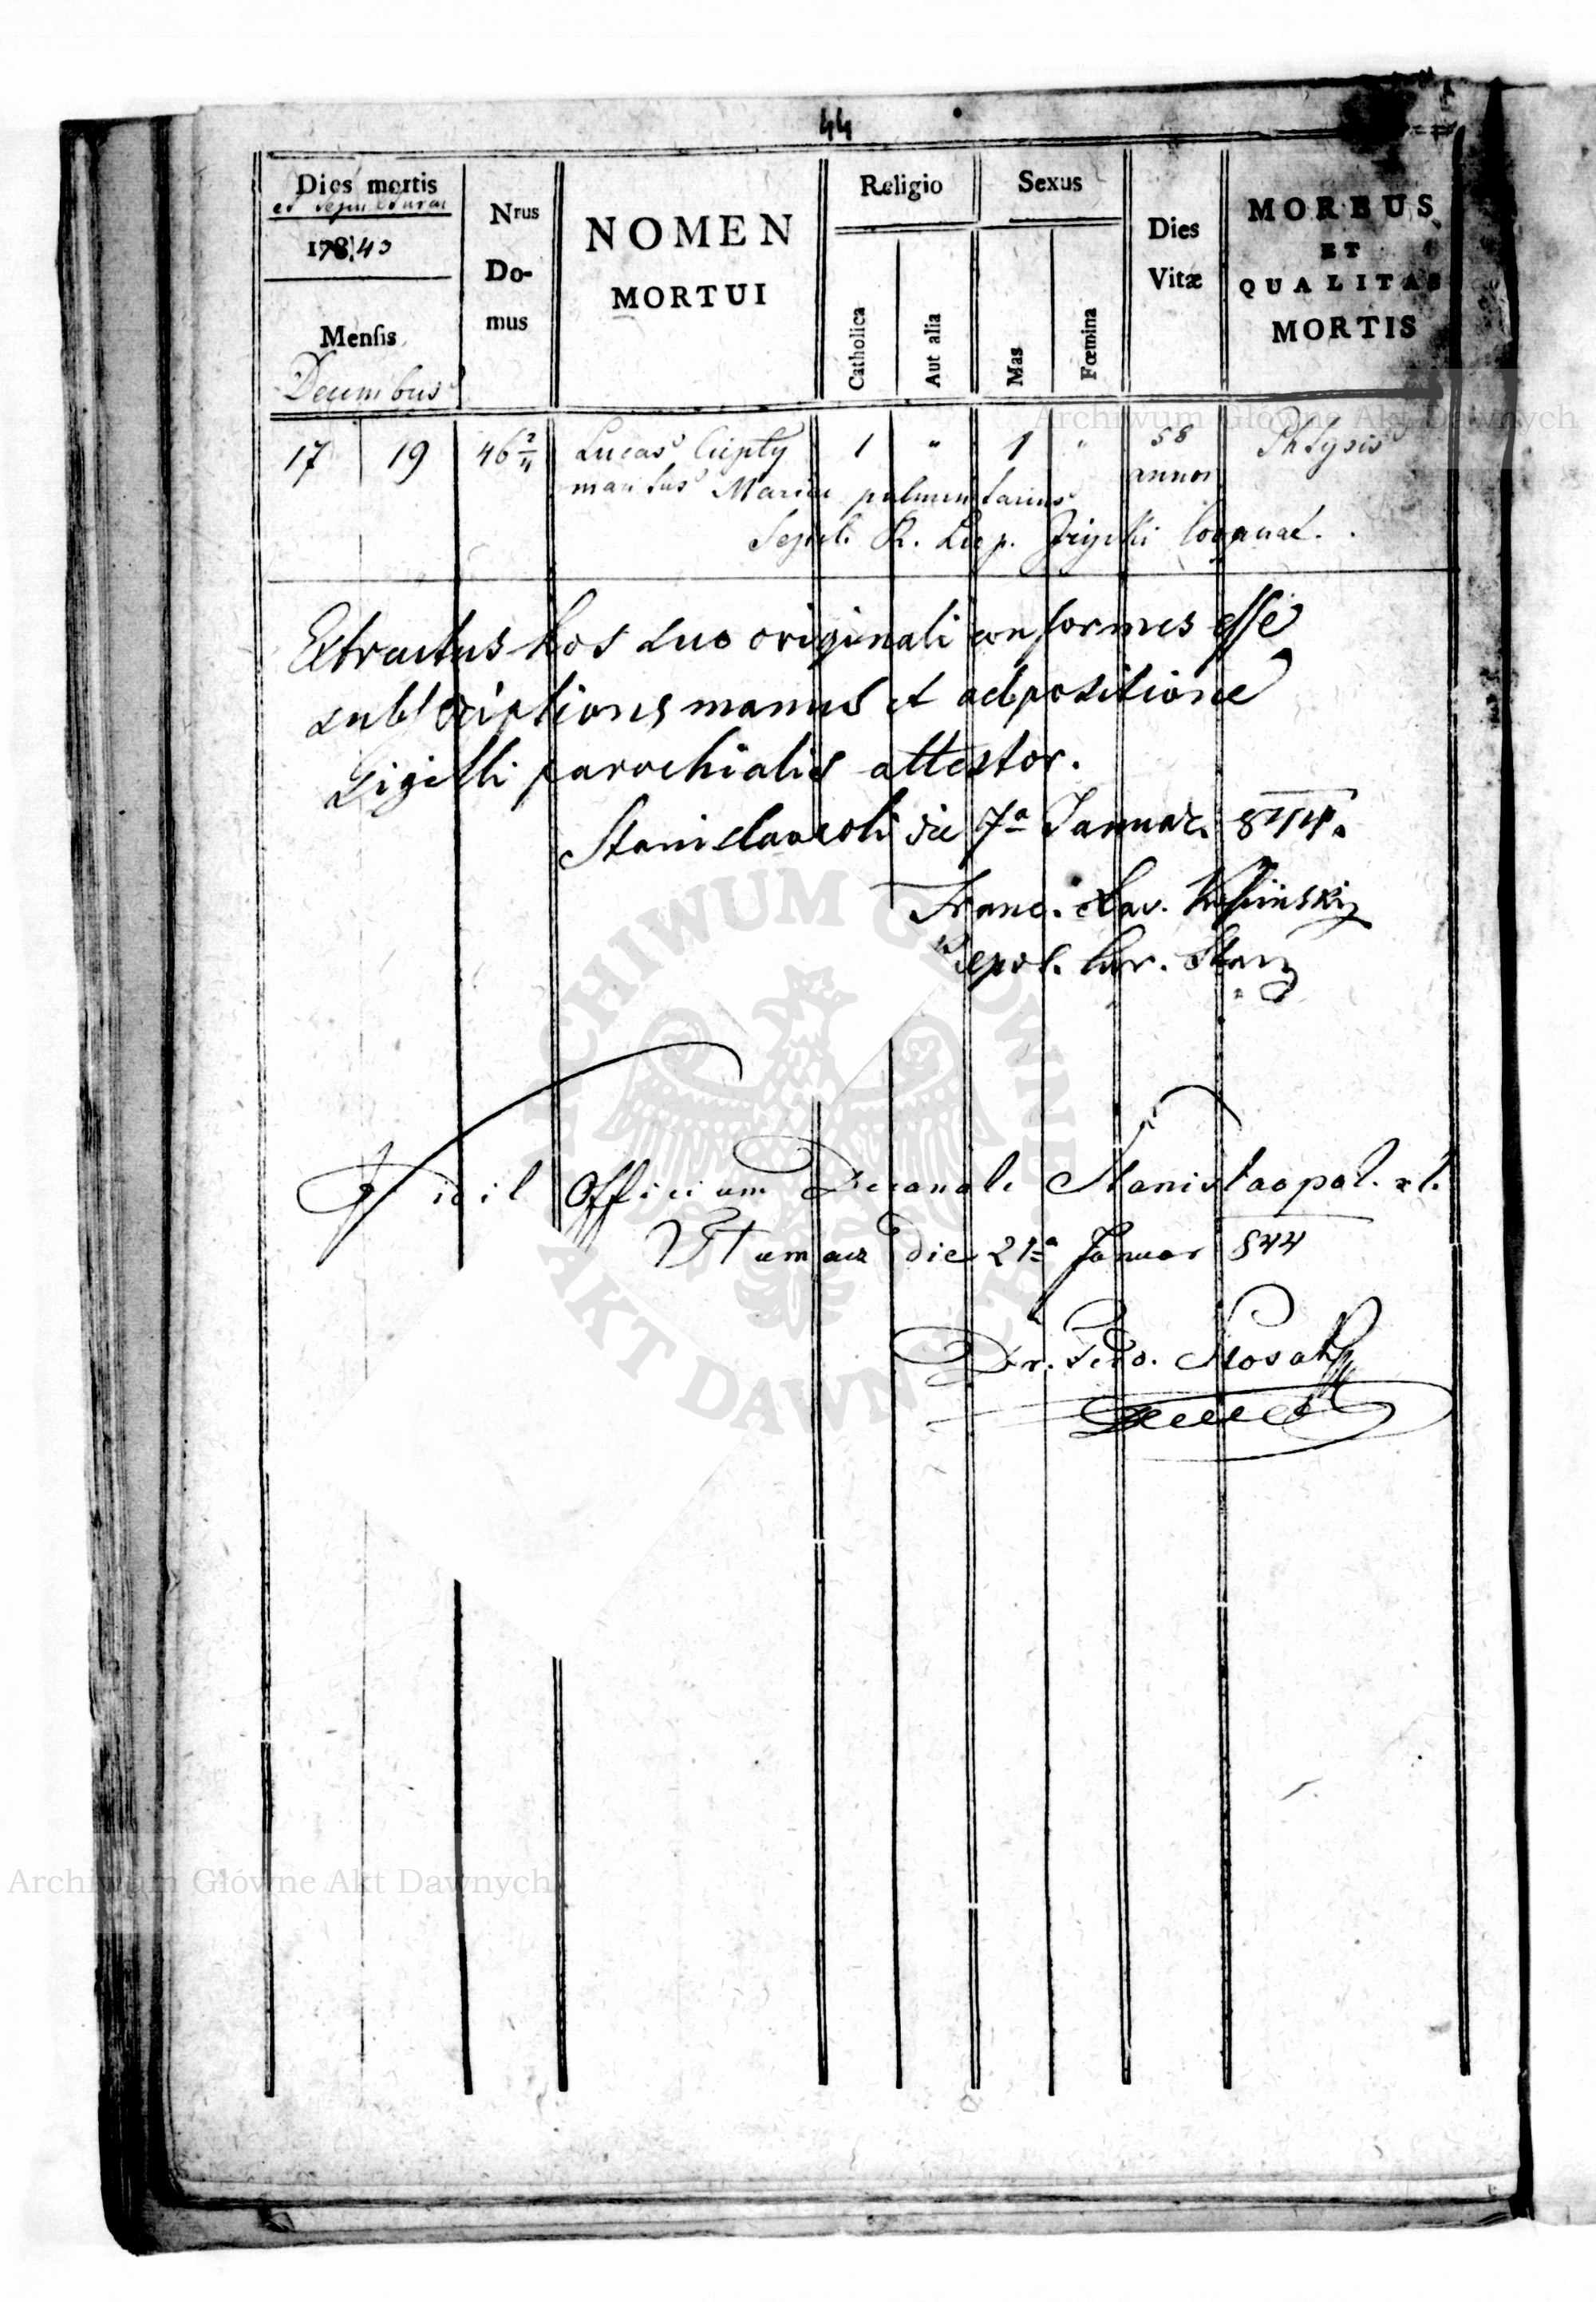 44
Dies mortis
et sepulturae
178.43
Mensis
Decembris
Nrus
Do-
mus
NOMEN
MORTUI
Religio
Catholica
Aut alia
Sexus
Mas
Fœmina
Dies
Vitæ
MORBUS
ET
QUALITAS
MORTIS
17 19 46 2/4 Lucas Ciepły 1 " 1 " 58 Phtysis
maritus Mariae annor
Sepel. R.
Extractus hos suo originali conformes esse
subscriptione manus et adpositione
Sigilli parochialis attestor.
Stanislaopoli die 7a Januar. 844.
Franc. Xav.
Vidit Officium Decanale Stanislaopol. r.l.
Die 21a Januar 844
Dr. Ferd.
Archiwum Główne Akt Dawnych
ARCHIWUM GŁÓWNE AKT DAWNYCH
Archiwum Główne Akt Dawnych